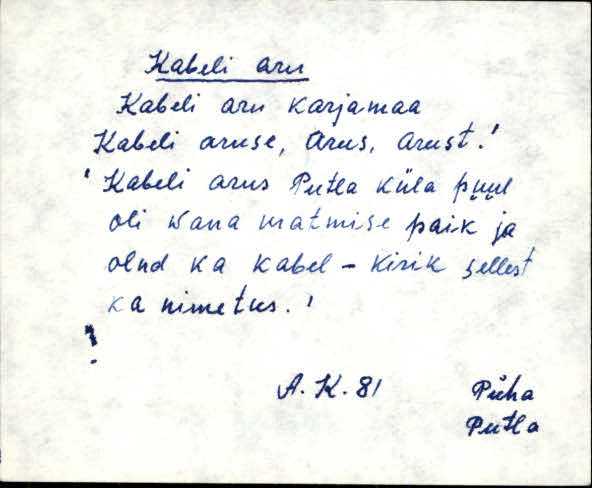 Kabeli aru
Kabeli aru karjamaa
Kabeli aruse, Arus, arust.'
' Kabeli arus Putla küla puul
oli wana matmise paik ja
olnd ka kabel - kirik sellest
ka nimetus. '
!
A. K. 81
Püha
Putla